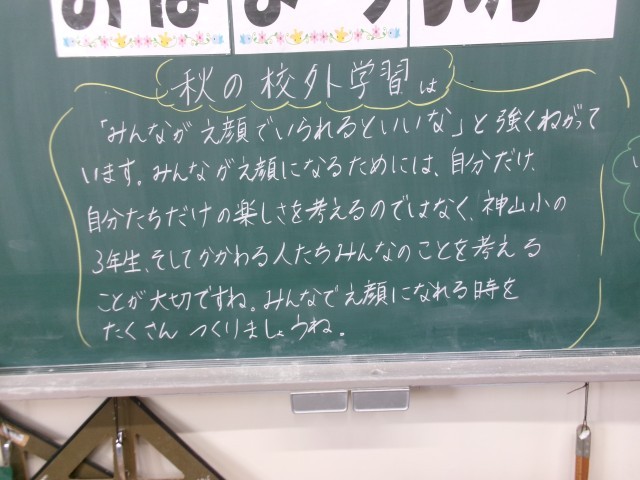 秋の校外学習は
「みんながえ顔でいられるといいな」と強くねがって
います。みんながえ顔になるためには、自分だけ、
自分たちだけの楽しさを考えるのではなく、神山小の
3年生、そしてかかわる人たちみんなのことを考える
ことが大切ですね。みんなでえ顔になれる時を
たくさん つくりましょうね。